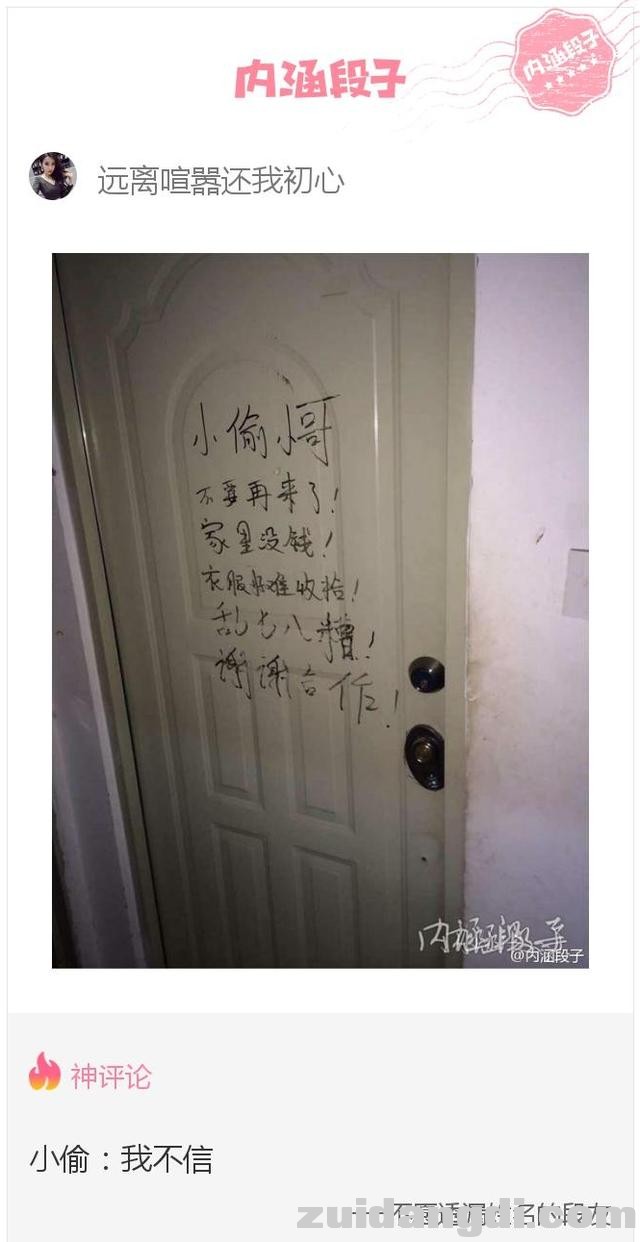 内涵段子
内涵段子
远离喧嚣还我初心
小偷小哥
不要再来了!
家里没钱!
衣服好难收拾!
乱七八糟!
谢谢合作!
内涵段子
@内涵段子
神评论
小偷：我不信
zuidangdi.com